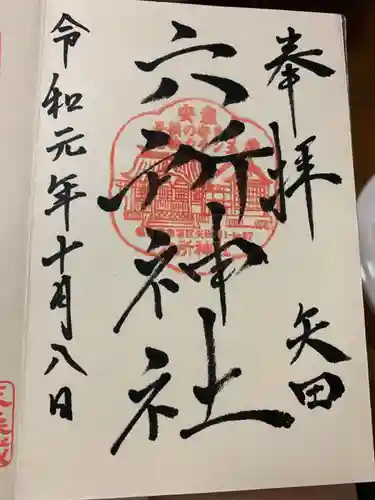 奉拝 矢田
六所神社
令和元年十月八日